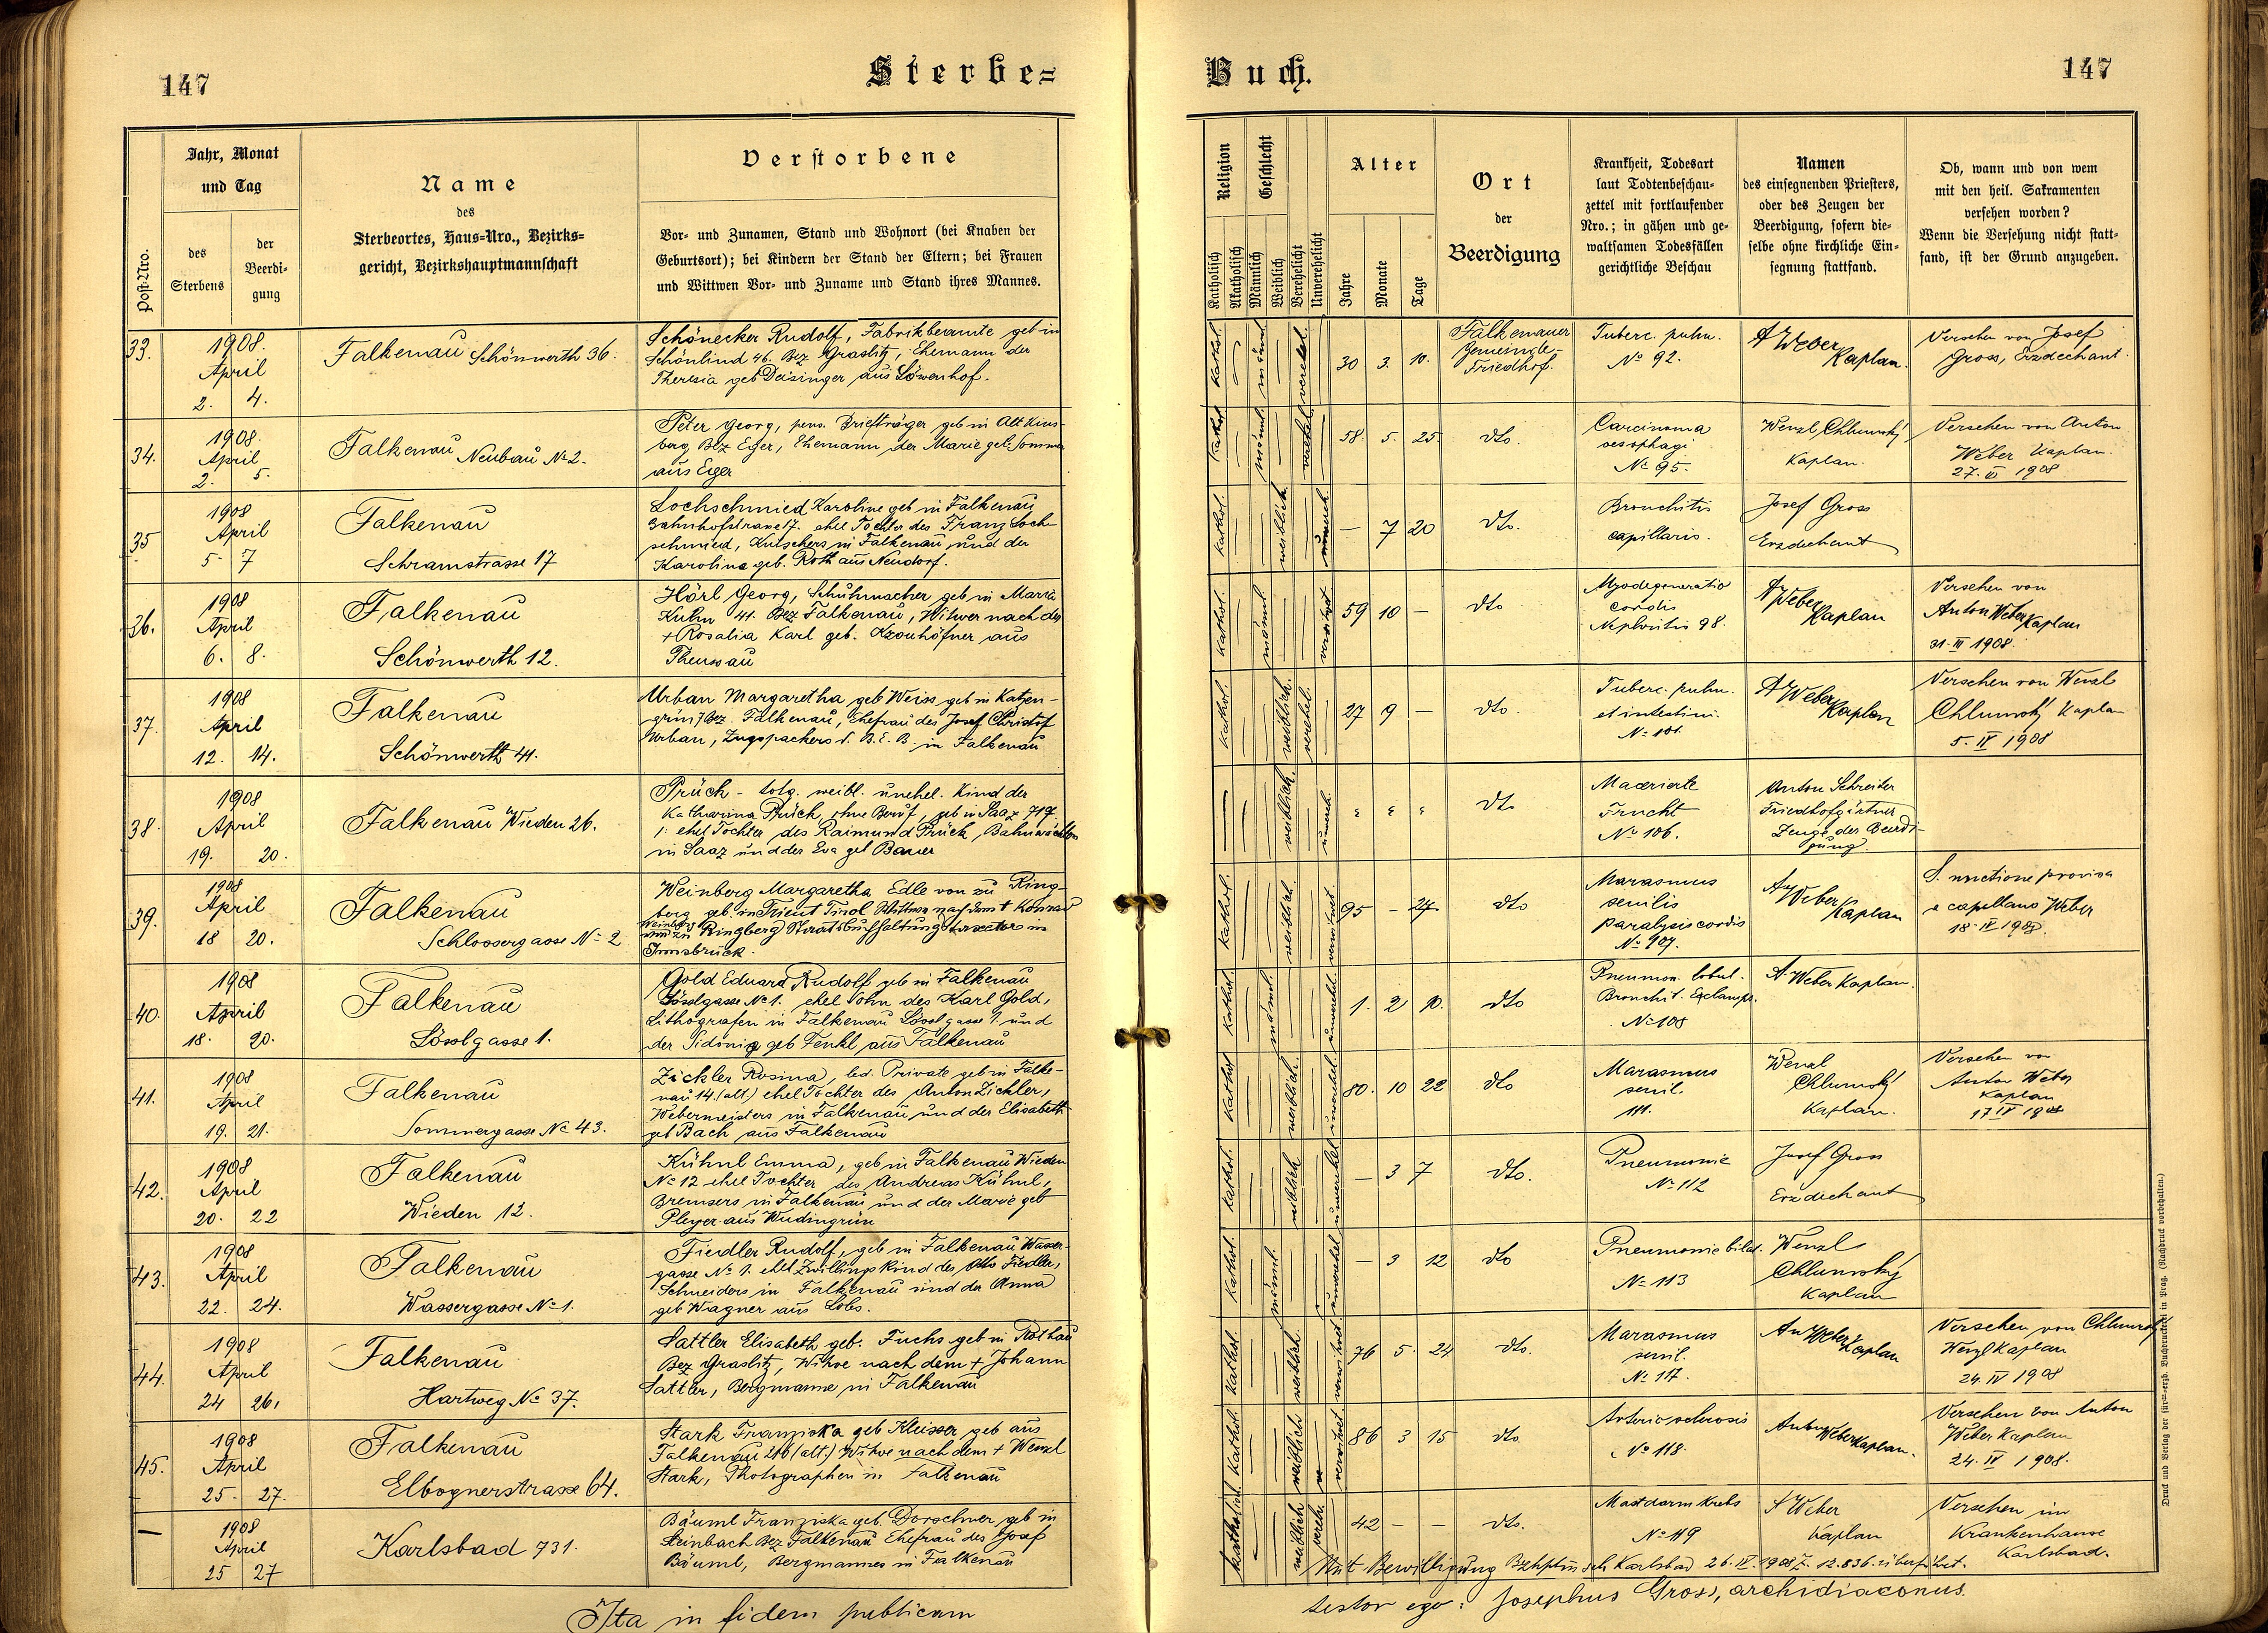 147
Sterbe=
Jahr, Monat
und Tag
des
Sterbens
der
Beerdi-
gung
Post-Nro.
Name
des
Sterbeortes, Haus-Nro., Bezirks=
gericht, Bezirkshauptmannschaft
Verstorbene
Vor- und Zunamen, Stand und Wohnort (bei Knaben der
Geburtsort); bei Kindern der Stand der Eltern; bei Frauen
und Wittwen Vor- und Zuname und Stand ihres Mannes.
33.
1908.
April
2. 4.
Falkenau Schönwerth 36.
Schönecker Rudolf, Fabrikbeamte geb in
Schönlind 46. Bez Graslitz, Ehemann der
Theresia geb Deisinger aus Löwenhof.
34.
1908.
April
2. 5.
Falkenau Neubau No 2.
Peter Georg, pens. Briefträger geb in Alt Kins-
berg Bez Eger, Ehemann der Marie geb. Sommer
aus Eger
35
1908
April
5. 7
Falkenau
Schramstrasse 17
Lochschmied Karoline geb in Falkenau
Bahnhofstrasse 17. ehel Tochter des Franz Loch-
schmied, Kutschers in Falkenau und der
Karolina geb. Roth aus Neudorf.
36.
1908
April
6. 8.
Falkenau
Schönwerth 12.
Hörl Georg, Schuhmacher geb in Maria
Kulm 41. Bez Falkenau, Witwer nach der
+ Rosalia Karl geb. aus
Theussau
37.
1908
April
12. 14.
Falkenau
Schönwerth 41.
Urban Margaretha geb Weiss geb in Katzen-
grün 7 Bez. Falkenau, Ehefrau des Josef Christof
Urban, Zugspackers d. B. E. B. in Falkenau
38.
1908
April
19. 20.
Falkenau Wieden 26.
Prück - totg. weibl. unehel. Kind der
Katharina Prück, ohne Beruf, geb in Saaz 717.
1: ehel Tochter des Raimund Prück, Bahnwächters
in Saaz und der Eva geb Bauer
39.
1908
April
18 20.
Falkenau
Schlossergasse No 2
Weinberg Margaretha Edle von zu Ring-
berg geb. in Trient Tirol Wittwe nach dem + Konrad
Weinberg
von zu Ringberg Staatsbuchhaltungsdirektor in
Innsbruck.
40.
1908
April
18. 20.
Falkenau
Lösslgasse 1.
Gold Eduard Rudolf geb in Falkenau
Lösslgasse No 1. ehel Sohn des Karl Gold,
Lithografen in Falkenau Lösslgasse 1. und
der Sidonia geb Fenkl aus Falkenau
41.
1908
April
19. 21.
Falkenau
Sommergasse No 43.
Zickler Rosina, led. Private geb in Falke-
nau 14. (alt.) ehel Tochter des Anton Zickler,
Webermeisters in Falkenau und der Elisabeth
geb Bach aus Falkenau
42.
1908
April
20. 22
Falkenau
Wieden 12.
Kühnl Emma, geb in Falkenau Wieden
No 12 ehel Tochter des Andreas Kühnl,
Bremsers in Falkenau und der Marie geb
Pleyer aus Wudingrün
43.
1908
April
22. 24.
Falkenau
Wassergasse No 1.
Fiedler Rudolf, geb in Falkenau Wasser-
gasse No 1. ehel Zwillingskind des Otto Fiedler,
Schneiders in Falkenau und der Anna
geb Wagner aus Lobs.
44.
1908
April
24 26.
Falkenau
Hartweg No 37.
Sattler Elisabeth geb. Fuchs geb in Rothau
Bez Graslitz, Witwe nach dem + Johann
Sattler, Bergmanne in Falkenau
45.
1908
April
25. 27.
Falkenau
Elbognerstrasse 64.
Stark Franziska geb Kleisser, geb aus
Falkenau 216 (alt.) Witwe nach dem + Wenzl
Stark, Photographen in Falkenau
—
1908
April
25 27
Karlsbad 731.
Bäuml Franziska geb. Dorschner geb in
Steinbach Bez Falkenau Ehefrau des Josef
Bäuml, Bergmannes in Falkenau
Ita in fidem publicam
Buch.
147
Religion
Geschlecht
Katholisch
Akatholisch
Männlich
Weiblich
Verehelicht
Unverehelicht
Alter
Jahre
Monate
Tage
Ort
der
Beerdigung
Krankheit, Todesart
laut Todtenbeschau-
zettel mit fortlaufender
Nro.; in gähen und ge-
waltsamen Todesfällen
gerichtliche Beschau
Namen
des einsegnenden Priesters,
oder des Zeugen der
Beerdigung, sofern die-
selbe ohne kirchliche Ein-
segnung stattfand.
Ob, wann und von wem
mit den heil. Sakramenten
versehen worden?
Wenn die Versehung nicht statt-
fand, ist der Grund anzugeben.
kathol. männl. verehel. 30 3. 10.
Falkenauer
Gemeinde-
Friedhof.
Tuberc. pulm.
No 92.
A Weber
Kaplan.
Versehen von Josef
Gross, Erzdechant.
kathol. männl. verehel. 58. 5. 25. dto.
Carcinoma
oesophagi
No 95.
Wenzl Chlumský
Kaplan.
Versehen von Anton
Weber Kaplan.
27. III 1908
kathol. weiblich unvereh. — 7 20 dto.
Bronchitis
capillaris.
Josef Gross
Erzdechant
kathol. männl. verwitwet 59 10 — dto
Myodegeneratio
cordis
Nephritis 98.
A Weber
Kaplan
Versehen von
Anton Weber Kaplan
31. III 1908.
kathol. weiblich. verehel. 27 9 — dto.
Tuberc. pulm.
et intestini.
No 101.
A Weber
Kaplan
Versehen von Wenzl
Chlumský Kaplan
5. IV 1908
weiblich. unvereh. dto
Macerierte
Frucht
No 106.
Anton Schreiter
Friedhofgärtner
Zeuge der Beerdi-
gung.
kathol. weiblich. verwitwet. 95 - 27. dto
Marasmus
senilis
paralysis cordis
No 107.
A Weber
Kaplan
S. unctione provisa
e capellano Weber
18. IV 1908.
kathol. männl. unverehel. 1. 2 10. dto
Pneumon. lobul.
Bronchit. Exclamps.
No 108
A. Weber Kaplan.
kathol. weiblich. unverehel. 80. 10 22 dto
Marasmus
senil.
111.
Wenzl
Chlumský
Kaplan.
Versehen von
Anton Weber
Kaplan
17 IV 1908
kathol. weiblich unverehel — 3 7 dto.
Pneumonie
No 112
Josef Gross
Erzdechant
kathol. männl. unverehel — 3 12 dto
Pneumonie bilat.
No 113
Wenzl
Chlumský
Kaplan
kathol. weiblich. verwitwet 76 5. 24 dto.
Marasmus
senil.
No 117.
An Weber Kaplan
Versehen von Chlumský
Wenzl Kaplan
24. IV 1908
kathol. weiblich verwitwet. 86 3 15 dto
Arteriosclerosis
No 118.
Anton Weber Kaplan.
Versehen von Anton
Weber Kaplan
24. IV 1908.
kathol. weiblich vereh. 42 — — dto.
Mastdarmkrebs
No 119
A Weber
Kaplan
Versehen im
Krankenhause
Karlsbad.
Mit Bewilligung Karlsbad 26. IV. 1908 Z. 12.836. überführt.
testor ego: Josephus Gross, archidiaconus.
Druck und Verlag der fürst-erzb. Buchdruckerei in Prag. (Nachdruck vorbehalten.)